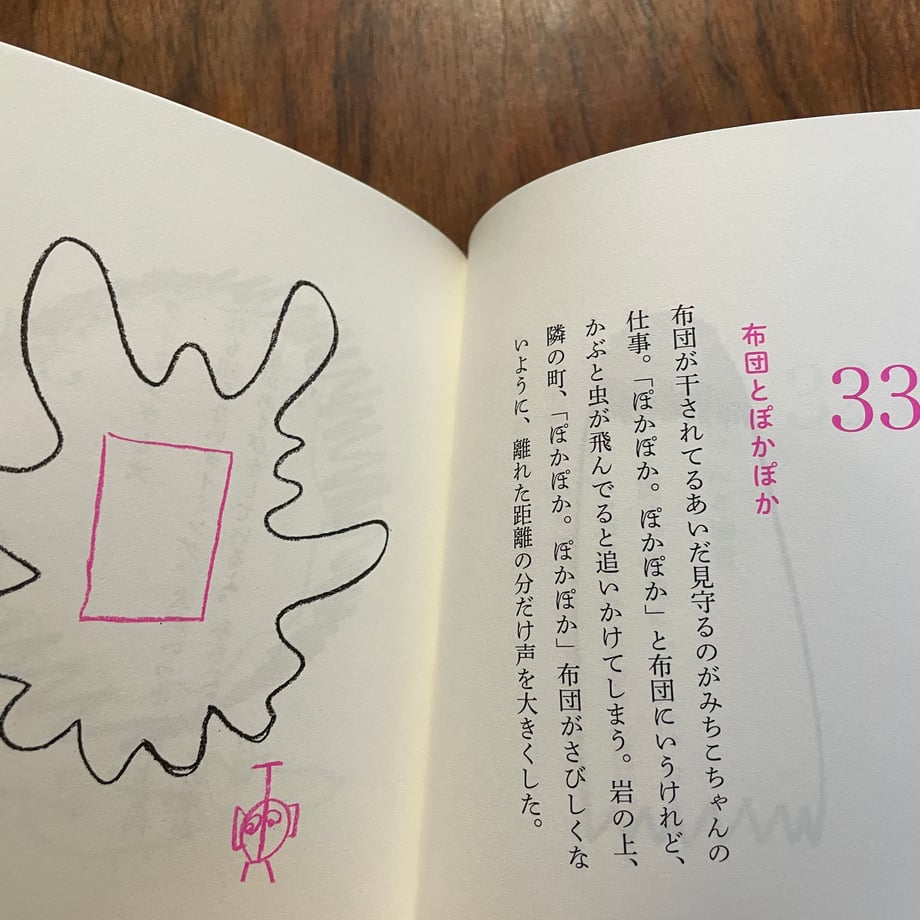 33
布団とぽかぽか
布団が干されてるあいだ見守るのがみちこちゃんの
仕事。「ぽかぽか。ぽかぽか」と布団にいうけれど、
かぶと虫が飛んでると追いかけてしまう。岩の上、
隣の町、「ぽかぽか。ぽかぽか」布団がさびしくな
いように、離れた距離の分だけ声を大きくした。